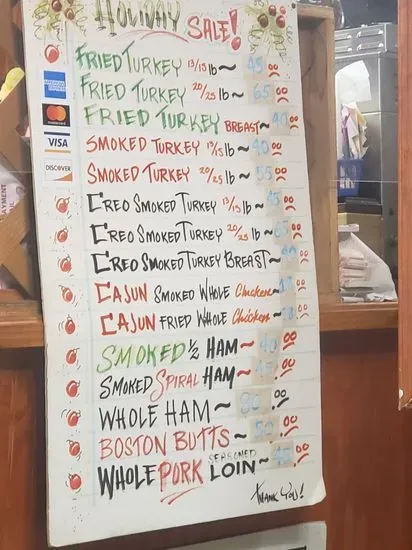 HOLIDAY SALE!
FRIED TURKEY 13/15 lb ~ 45 00
FRIED TURKEY 20/25 lb ~ 65 00
FRIED TURKEY BREAST ~ 40 00
SMOKED TURKEY 13/15 lb ~ 40 00
SMOKED TURKEY 20/25 lb ~ 55 00
CREO SMOKED TURKEY 13/15 lb ~ 45 00
CREO SMOKED TURKEY 20/25 lb ~ 00
CREO SMOKED TURKEY BREAST ~ 00
CAJUN SMOKED WHOLE Chicken ~ 00
CAJUN FRIED WHOLE Chicken ~ 00
SMOKED 1/2 HAM ~ 40 00
SMOKED SPIRAL HAM ~ 45 00
WHOLE HAM ~ 80.00
BOSTON BUTTS ~ 50.00
WHOLE PORK SEASONED LOIN ~ 45 00
THANK YOU!
AMERICAN EXPRESS
mastercard
VISA
DISCOVER